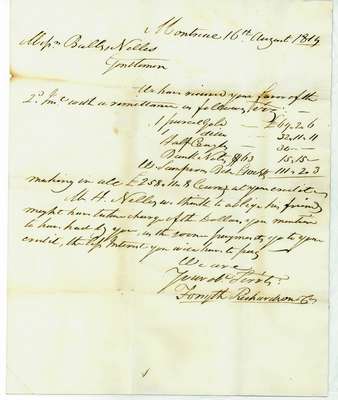 Montreal 16th August 1819
Messrs Ball & Nelles
Gentlemen
We have received your favor of the
2d Inst with a remittance as follows, Viz:
1 purse Gold — £69.2.6
1 " ditto 32.11.11
Half Eagles 30.—
Bank Notes $63 15.15—
W. Sampson Bds 111.2.3
making in all £258.11.8 Currcy at your credit
Mr. H. Nelles we think to oblige his friend
might have taken charge of the Dollars, you mention
to have had by you, as the sooner payments go to your
credit, the less Interest you will have to pay
We are
Your ob. Servts
Forsyth Richardson & Co